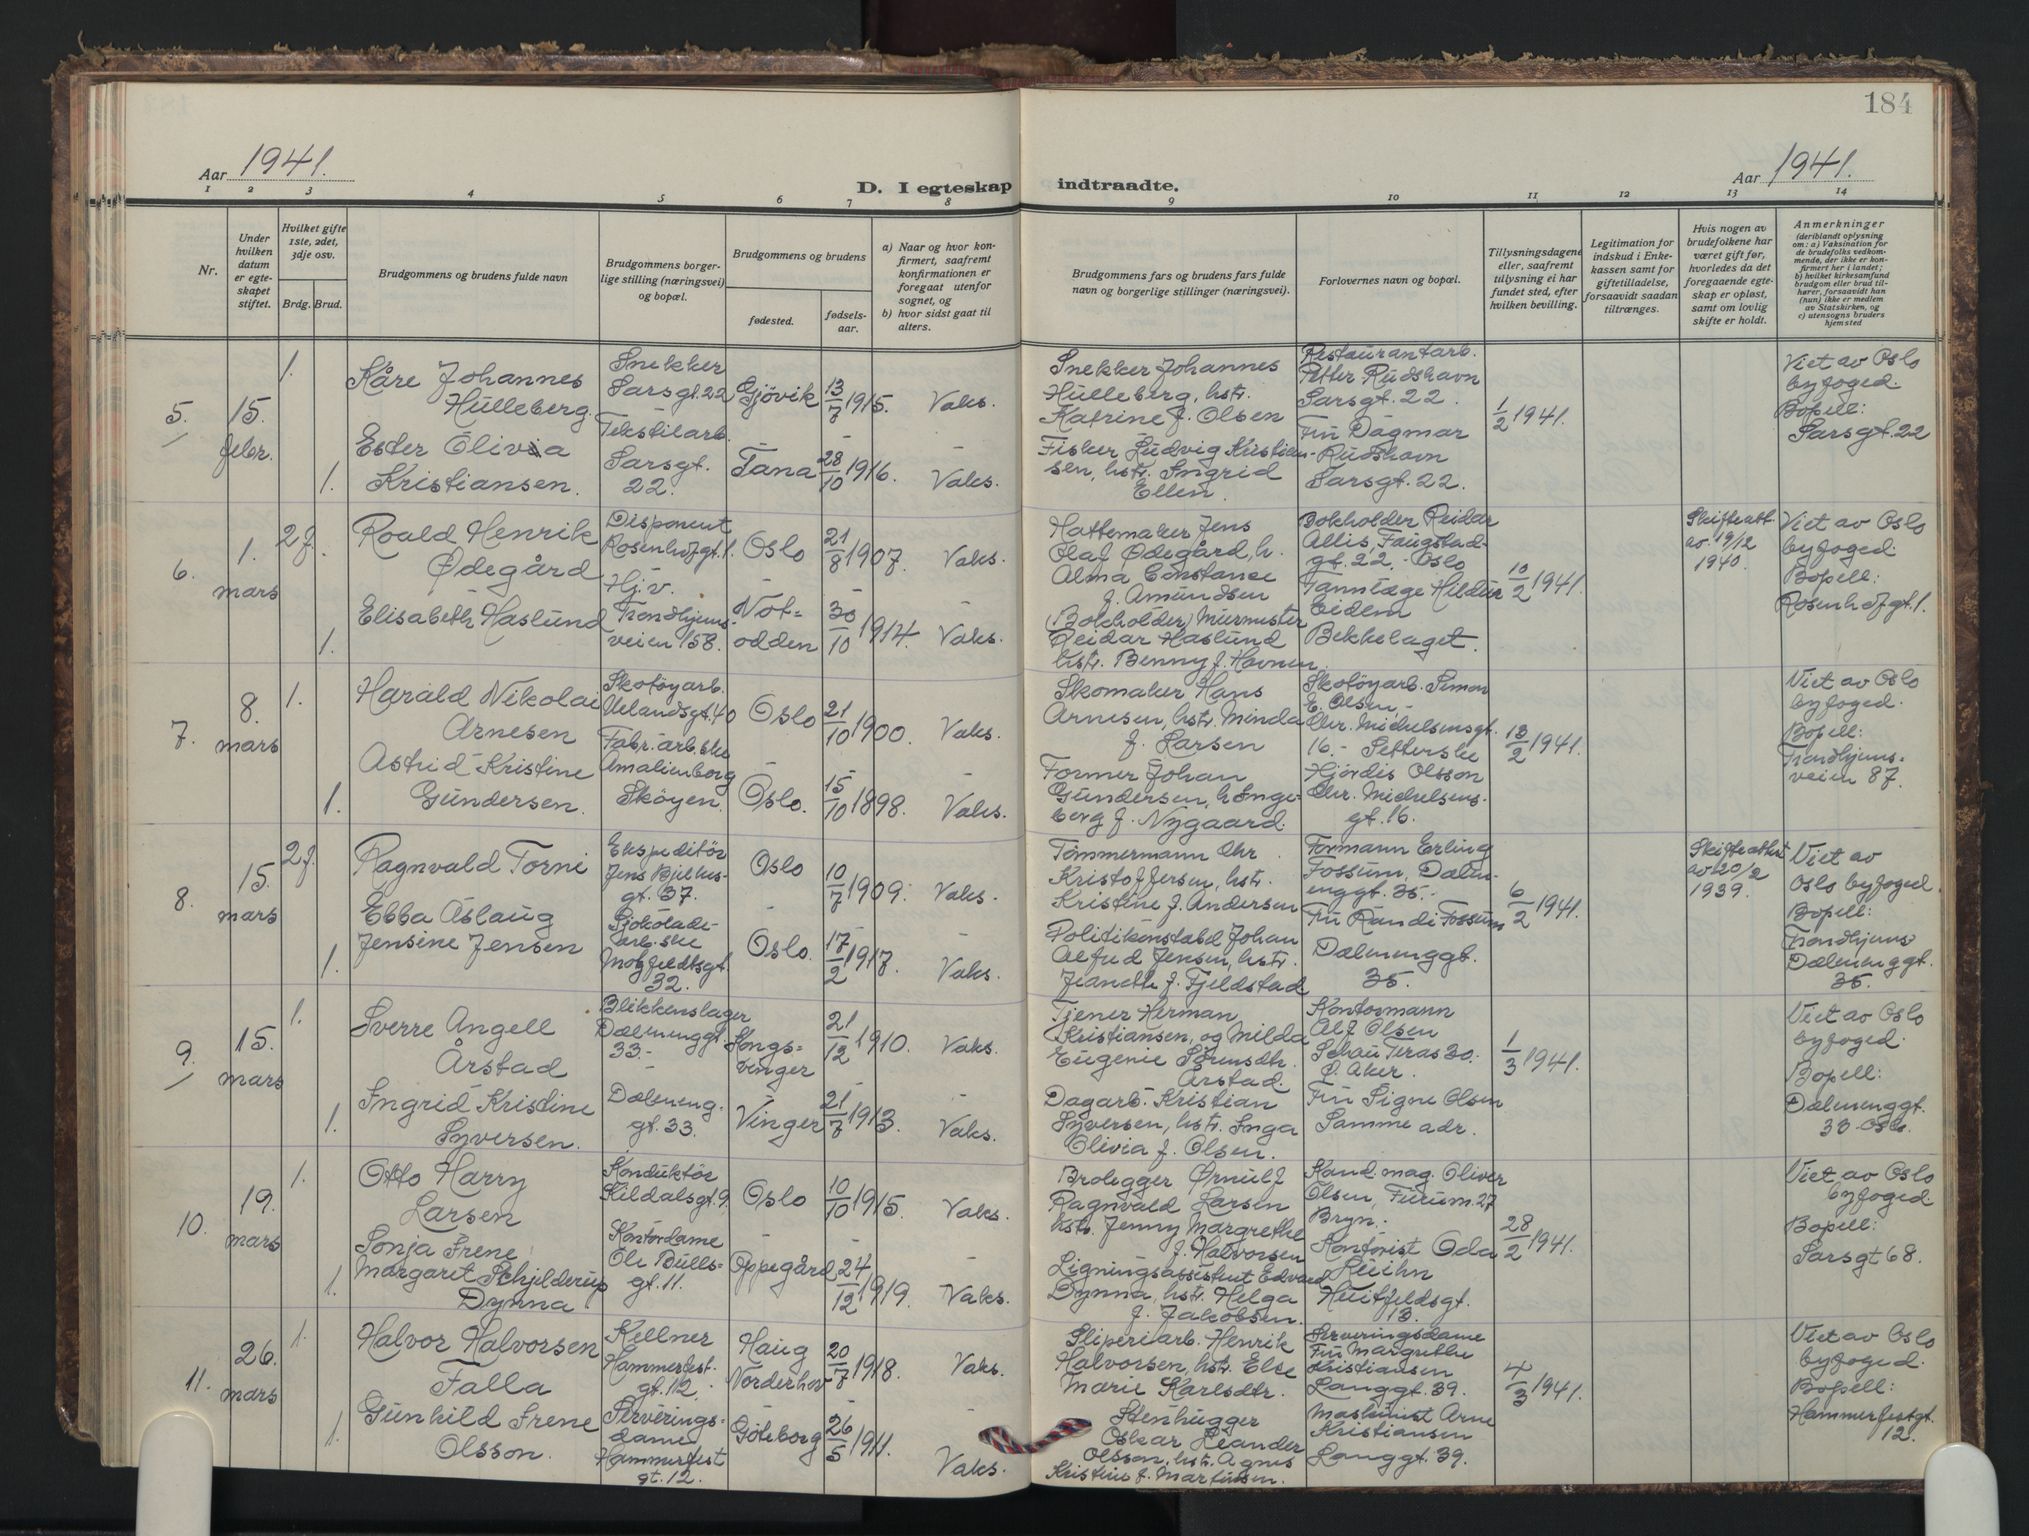 184
Aar 1941.
D. I egteskap indtraadte.
Aar 1941.
1 2 3 4 5 6 7 8 9 10 11 12 13 14
Nr.
Under hvilken datum er egteskapet stiftet.
Hvilket gifte 1ste, 2det, 3dje osv.
Brdg. Brud.
Brudgommens og brudens fulde navn
Brudgommens borgerlige stilling (næringsvei) og bopæl.
Brudgommens og brudens
fødested.
fødselsaar.
a) Naar og hvor konfirmert, saafremt konfirmationen er foregaat utenfor sognet, og
b) hvor sidst gaat til alters.
Brudgommens fars og brudens fars fulde navn og borgerlige stillinger (næringsvei).
Forlovernes navn og bopæl.
Tillysningsdagene eller, saafremt tillysning ei har fundet sted, efter hvilken bevilling.
Legitimation for indskud i Enkekassen samt for giftetilladelse, forsaavidt saadan tiltrænges.
Hvis nogen av brudefolkene har været gift før, hvorledes da det foregaaende egteskap er opløst, samt om lovlig skifte er holdt.
Anmerkninger
(deriblandt oplysning om: a) Vaksination for de brudefolks vedkommende, der ikke er konfirmert her i landet; b) hvilket kirkesamfund brudgom eller brud tilhører, forsaavidt han (hun) ikke er medlem av Statskirken, og c) utensogns bruders hjemsted
5.
15.
febr.
1.
Kåre Johannes
Hulleberg.
Snekker
Sarsgt. 22
Gjövik
13/7 1915.
Vaks.
Ester Olivia
Kristiansen.
1.
Tekstilarb.
Sarsgt.
22.
Tana
28/10 1916.
Vaks.
Snekker Johannes
Hulleberg, hstr.
Katrine f. Olsen
Fisker Ludvig Kristian-
sen, hstr. Ingrid
Ellen.
Restaurantarb.
Petter Rudshavn
Sarsgt. 22.
Fru Dagmar
Rudshavn
Sarsgt. 22.
1/2 1941.
Viet av Oslo
byfoged.
Bopell:
Sarsgt. 22
6.
1.
mars
2 f.
Roald Henrik
Ødegård
Disponent
Rosenhofgt. 1.
Oslo
21/8 1907.
Vaks.
Elisabeth Haslund
1.
Hj. v.
Trondhjems-
veien 158.
Not-
odden
30/10 1914.
Vaks.
Hattemaker Jens
Olaf Ødegård, h.
Alma Constance
f. Amundsen
(Bokholder) Murmester
Reidar Haslund
hstr. Benny f. Havnen.
Bokholder Reidar
Allis Faugstad-
gt. 22. - Oslo
Tannlæge Hildur
Eidem
Bekkelaget.
10/2 1941.
Skifteatt.
av. 19/12
1940.
Viet av Oslo
byfoged.
Bopell:
Rosenhofgt. 1.
7.
8.
mars
1.
Harald Nikolai
Arnesen
Skotöyarb.
Uelandsgt. 40
Oslo
21/10 1900.
Vaks.
Astrid Kristine
Gundersen.
1.
Fabr. arb.ske
Amalienborg
Sköyen.
Oslo.
15/10 1898.
Vaks.
Skomaker Hans
Arnesen, hstr. Minda
f. Larsen
Former Johan
Gundersen, h. Inge-
borg f. Nygaard.
Skotöyarb. Simon
E. Olsen.-
Chr. Michelsensgt.
16.- Setterske
Hjördis Olsson
Chr. Michelsens-
gt. 16.
13/2 1941.
Viet av Oslo
byfoged.
Bopell:
Trondhjems-
veien 87.
8.
15.
mars
2 f.
Ragnvald Torni
Ekspeditör
Jens Bjelkes-
gt. 37.
Oslo
10/7 1909.
Vaks.
Ebba Aslaug
Jensine Jensen
1.
Sjokolade-
arb.ske
Motzfeldtsgt.
32.
Oslo.
17/2 1917.
Vaks.
Tömmermann Chr.
Kristoffersen, hstr.
Kristine f. Andersen
Politikonstabel Johan
Alfred Jensen, hstr.
Jeanette f. Fjeldstad
Formann Erling
Fossum, Dælen-
enggt. 35.
Fru Randi Fossum
Dælenenggt.
35.
6/2 1941.
Skifteattest
av 20/2
1939.
Viet av
Oslo byfoged.
Bopell:
Trondhjems-
Dælenenggt.
35.
9.
15.
mars
1.
Sverre Angell
Årstad
Blikkenslager
Dælenenggt.
33.-
Kongs-
vinger
21/12 1910.
Vaks.
Ingrid Kristine
Syversen.
1.
Dæleneng-
gt. 33.
Vinger
21/7 1913.
Vaks.
Tjener Herman
Kristiansen, og Milda
Eugenie Sörensdtr.
Årstad.
Dagarb. Kristian
Syversen, hstr. Inga
Olivia f. Olsen.
Kontormann
Alf Olsen
Schau Teras 20.
Ö. Aker.
Fru Signe Olsen
Samme adr.
1/3 1941.
Viet av Oslo
byfoged.
Bopell:
Dælenenggt.
33 - Oslo.
10.
19.
mars
1.
Otto Harry
Larsen
Konduktör
Kildalsgt. 9.
Oslo
10/10 1915.
Vaks.
Sonja Irene
Margaret Schjelderup
Dynna
1.
Kontordame
Ole Bulls-
gt. 11.
Oppegård
24/12 1919.
Vaks.
Brolegger Ørnulf
Ragnvald Larsen
hstr. Jenny Margrethe
f. Halvorsen
Ligningsassistent Edvard
Dynna, hstr. Helga
f. Jakobsen.
Kand. mag. Oliver
Olsen, Furum. 27
Bryn.-
Kontorist Oda
Huitfeldsgt.
13.
28/2 1941.
Viet av Oslo
byfoged.
Bopell:
Sarsgt 68.
11.
26.
mars
1.
Halvor Halvorsen
Falla
Kellner
Hammerfest-
gt. 12.
Haug
Norderhov
20/7 1918.
Vaks.
Gunhild Irene
Olsson.
1.
Serverings-
dame
Hammerfest
gt. 12.
Göteborg
26/5 1911.
Vaks.
Sliperiarb. Henrik
Halvorsen, hstr. Else
Marie Karlsdtr.
Stenhugger
Oskar Leander
Olsson, hstr. Agnes
Kristine f. Martinsen.
Serveringsdame
Fru Margrethe
Kristiansen
Langgt. 39.
Maskinist Arne
Kristiansen
Langgt. 39.
4/3 1941.
Viet av Oslo
byfoged.
Bopell:
Hammerfestgt.
12.